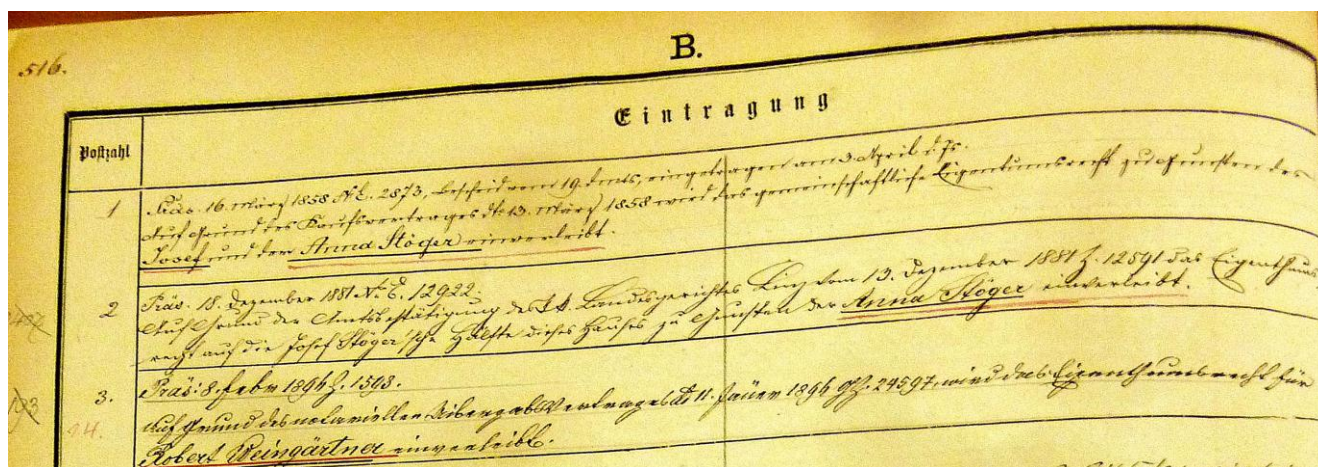 516.
B.
Eintragung
Postzahl
1 Präs. 16. März 1858 N.E. 2873, Bescheid vom 19. dmts, eingetragen am 3. April d. Js.
Auf Grund des Kaufsvertrages dto 13. März 1858 wird das gemeinschaftliche Eigentumsrecht zu Gunsten des
Josef und der Anna Stöger einverleibt.
2 Präs. 18. Dezember 1881 N. E. 12922.
Auf Grund der Amtsbestätigung des k.k. Landesgerichtes Linz vom 13. Dezember 1881 Z. 12591 das Eigenthums
recht auf die Josef Stöger'sche Hälfte dieses Hauses zu Gunsten der Anna Stöger einverleibt.
193 3. Präs: 8. Febr 1896 Z. 1503.
Auf Grund des notariellen Übergabsvertrages dto 11. Jänner 1896 GZ. 24597, wird das Eigenthumsrecht für
Robert Weingärtner einverleibt.